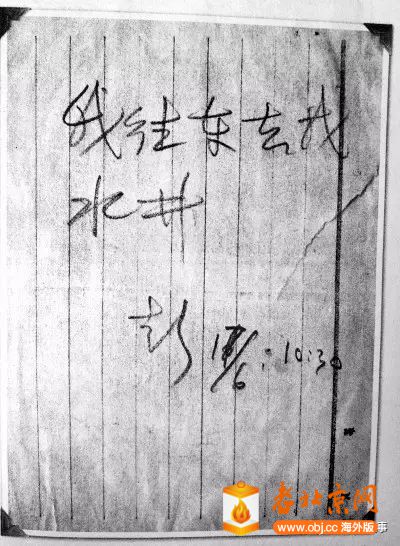 我往东去找
水井
彭 17/6:10:30
老北京网
www.obj.cc 海外版 事